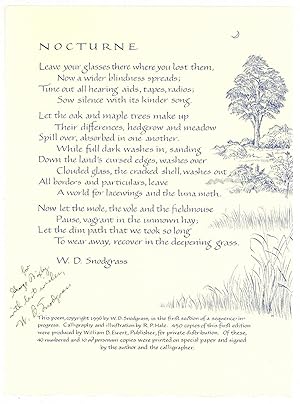 NOCTURNE
Leave your glasses there where you lost them,
Now a wider blindness spreads;
Tune out all hearing aids, tapes, radios;
Sow silence with its kinder song.
Let the oak and maple trees make up
Their differences, hedgerow and meadow
Spill over, absorbed in one another.
While full dark washes in, sanding
Down the land's cursed edges, washes over
Clouded glass, the cracked shell, washes out
All borders and particulars, leave
A world for lacewings and the luna moth.
Now let the mole, the vole and the fieldmouse
Pause, vagrant in the unmown hay;
Let the dim path that we took so long
To wear away, recover in the deepening grass.
W. D. Snodgrass
for
with best wishes,
W. D. Snodgrass
This poem, copyright 1990 by W. D. Snodgrass, is the first section of a sequence-in-
progress. Calligraphy and illustration by R. P. Hale. 450 copies of this first edition
were produced by William B. Ewert, Publisher, for private distribution. Of these,
40 numbered and 10 ad personam copies were printed on special paper and signed
by the author and the calligrapher.